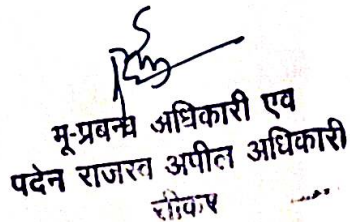 भू-प्रबन्ध अधिकारी एवं
पदेन राजस्व अपील अधिकारी
सीकर